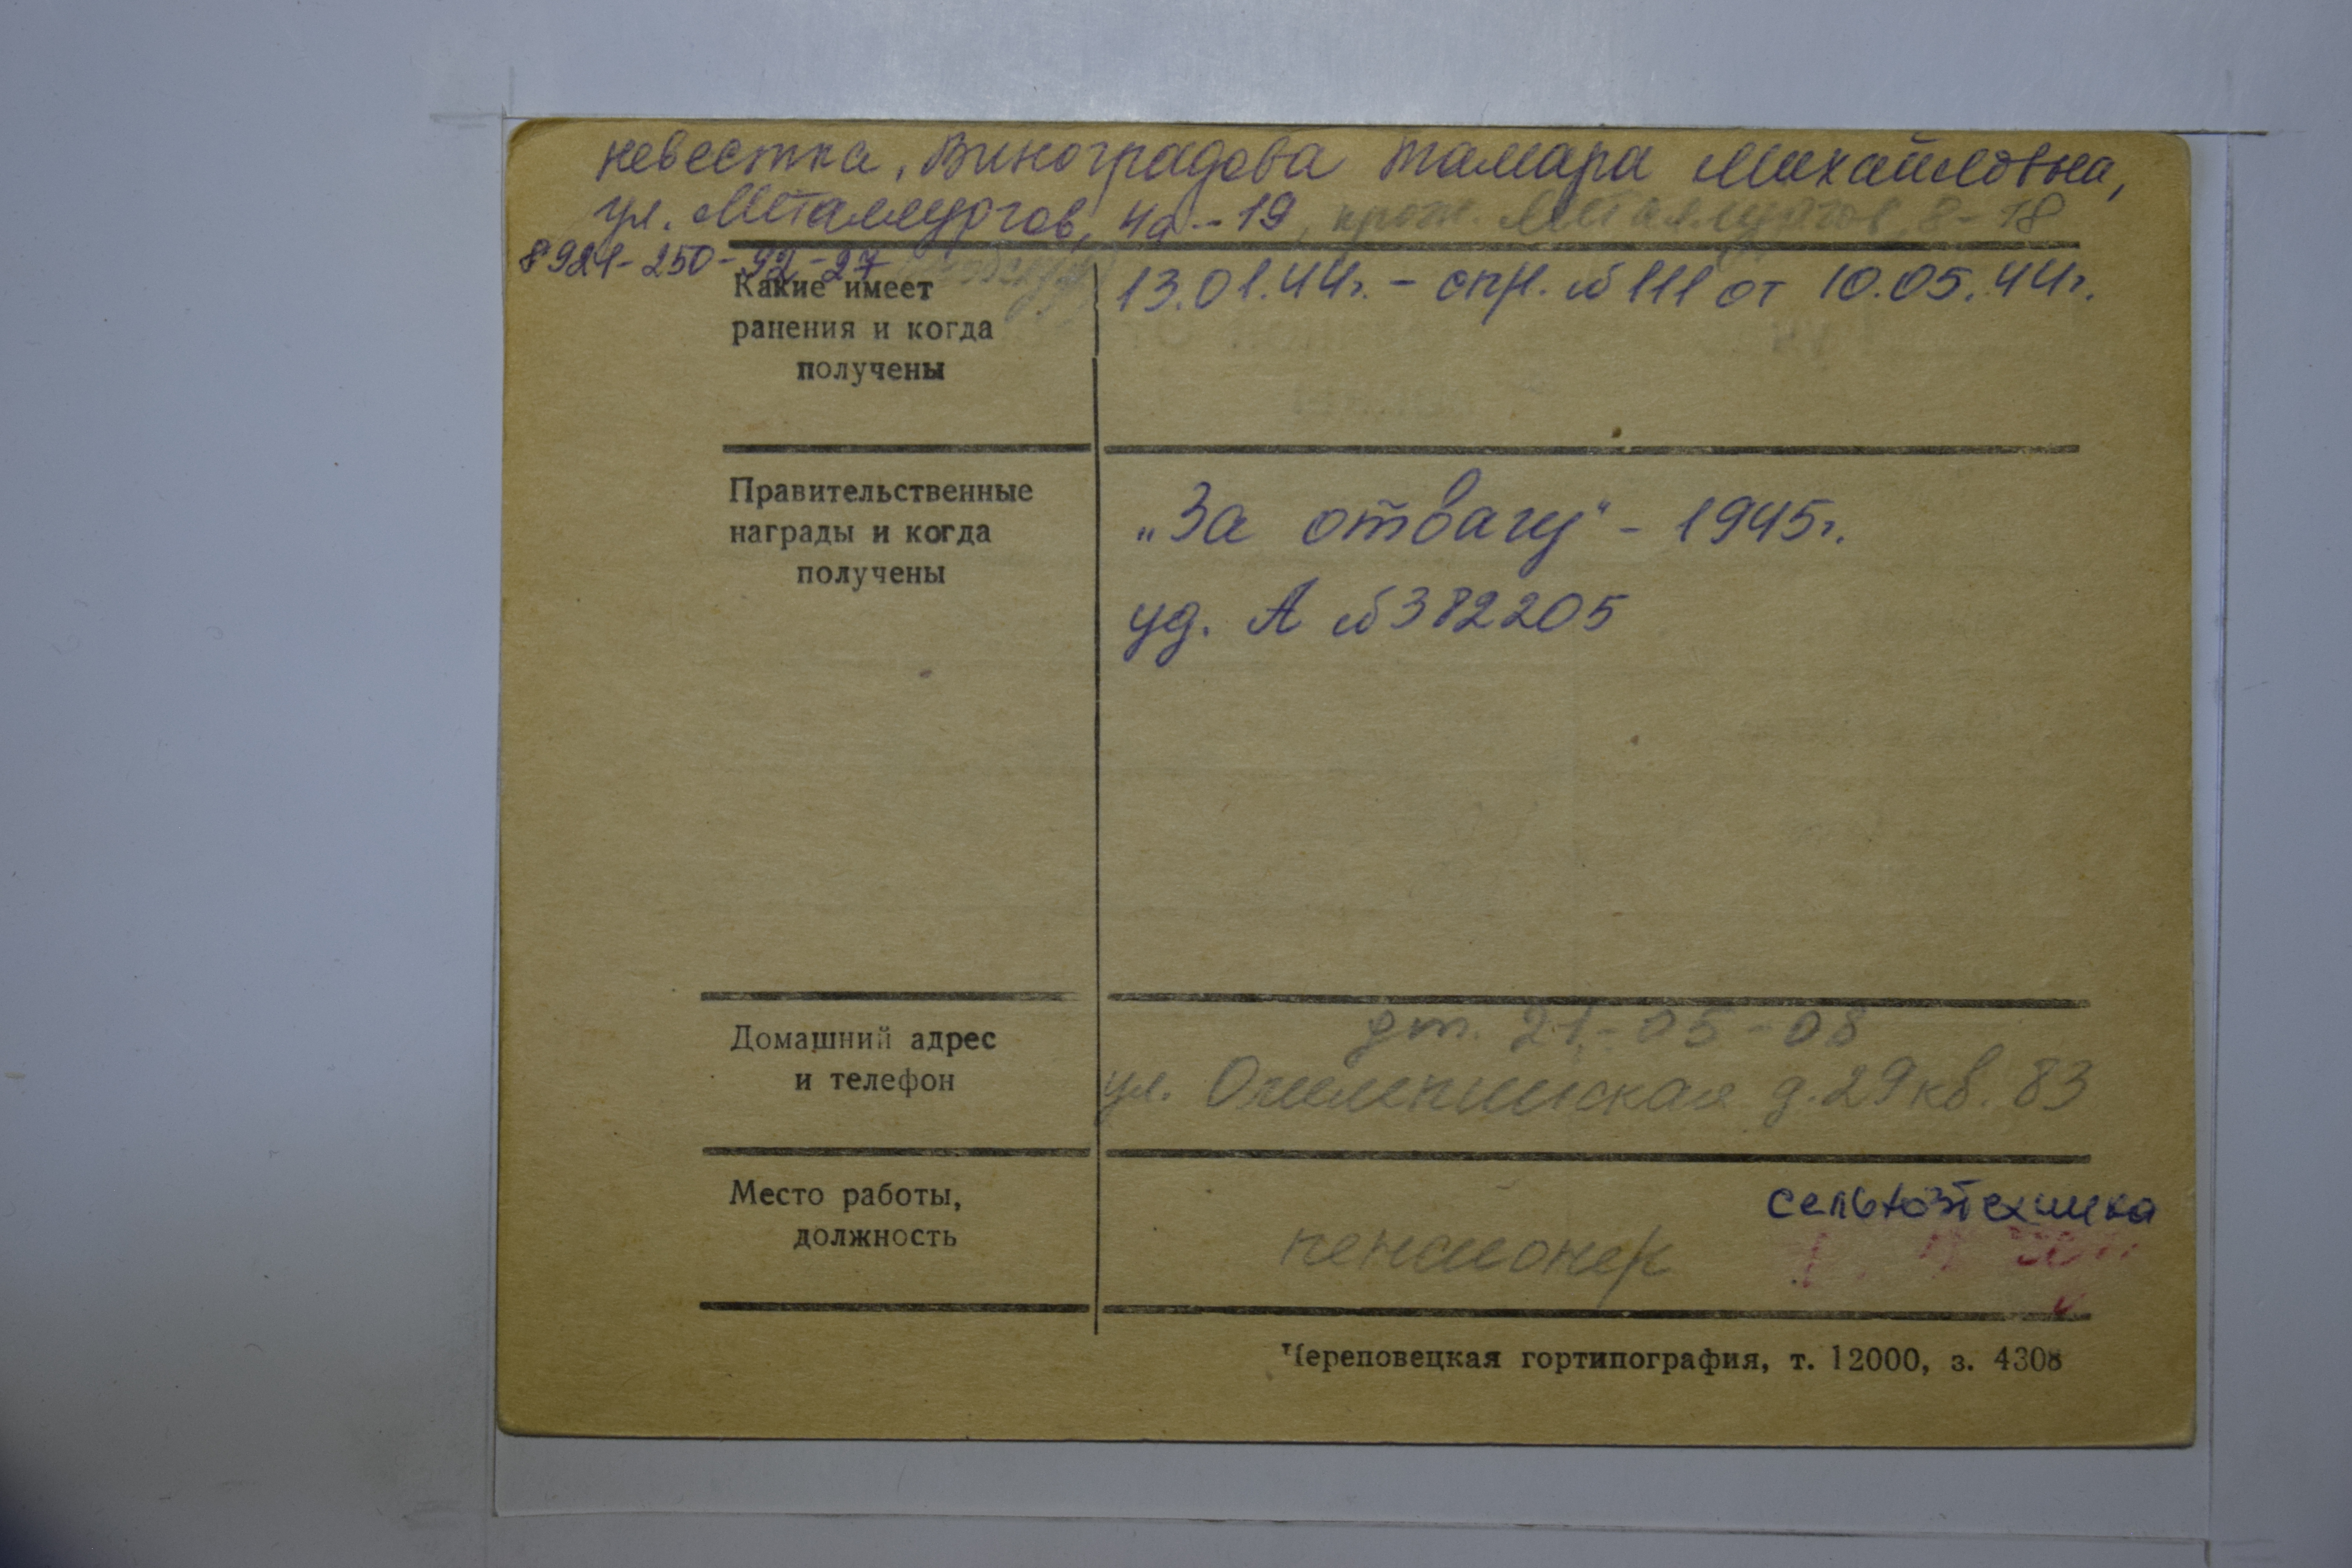 невестка, Виноградова Тамара Михайловна,
ул. Металлургов, 4а-19, прож. Металлургов, 8-18
8921-250-92-27
Какие имеет
ранения и когда
получены
13.01.44г. - спр. № 111 от 10.05.44г.
Правительственные
награды и когда
получены
„За отвагу" - 1945г.
уд. А № 382205
Домашний адрес
и телефон
дт. 21-05-08
ул. Олимпийская д.29 кв. 83
Место работы,
должность
сельхозтехника
пенсионер
Череповецкая гортипография, т. 12000, з. 4308